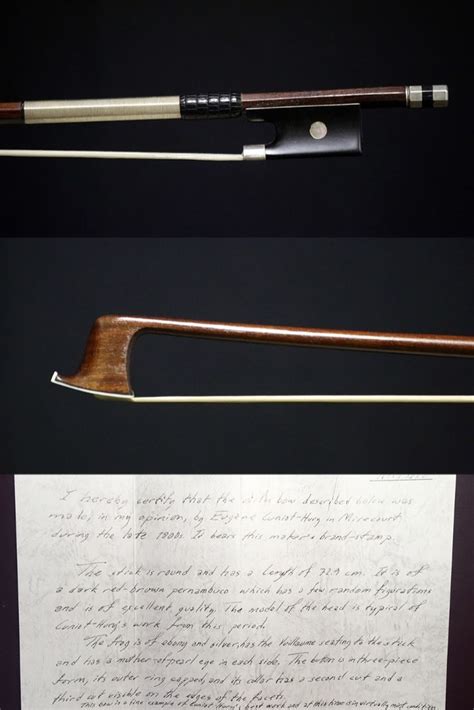 I hereby certify that the violin bow described below was
made, in my opinion, by Eugène Cuniot-Hury in Mirecourt
during the late 1800s. It bears this maker's brand-stamp.
The stick is round and has a length of 72.9 cm. It is of
a dark red-brown pernambuco which has a few random figurations
and is of excellent quality. The model of the head is typical of
Cuniot-Hury's work from this period.
The frog is of ebony and silver, has the Vuillaume seating to the stick
and has a mother-of-pearl eye in each side. The button is in three-piece
form, its outer ring capped, and its collar has a second cut and a
third cut visible on the edges of the facets.
This bow is a fine example of Cuniot-Hury's best work and at this time is in virtually mint condition